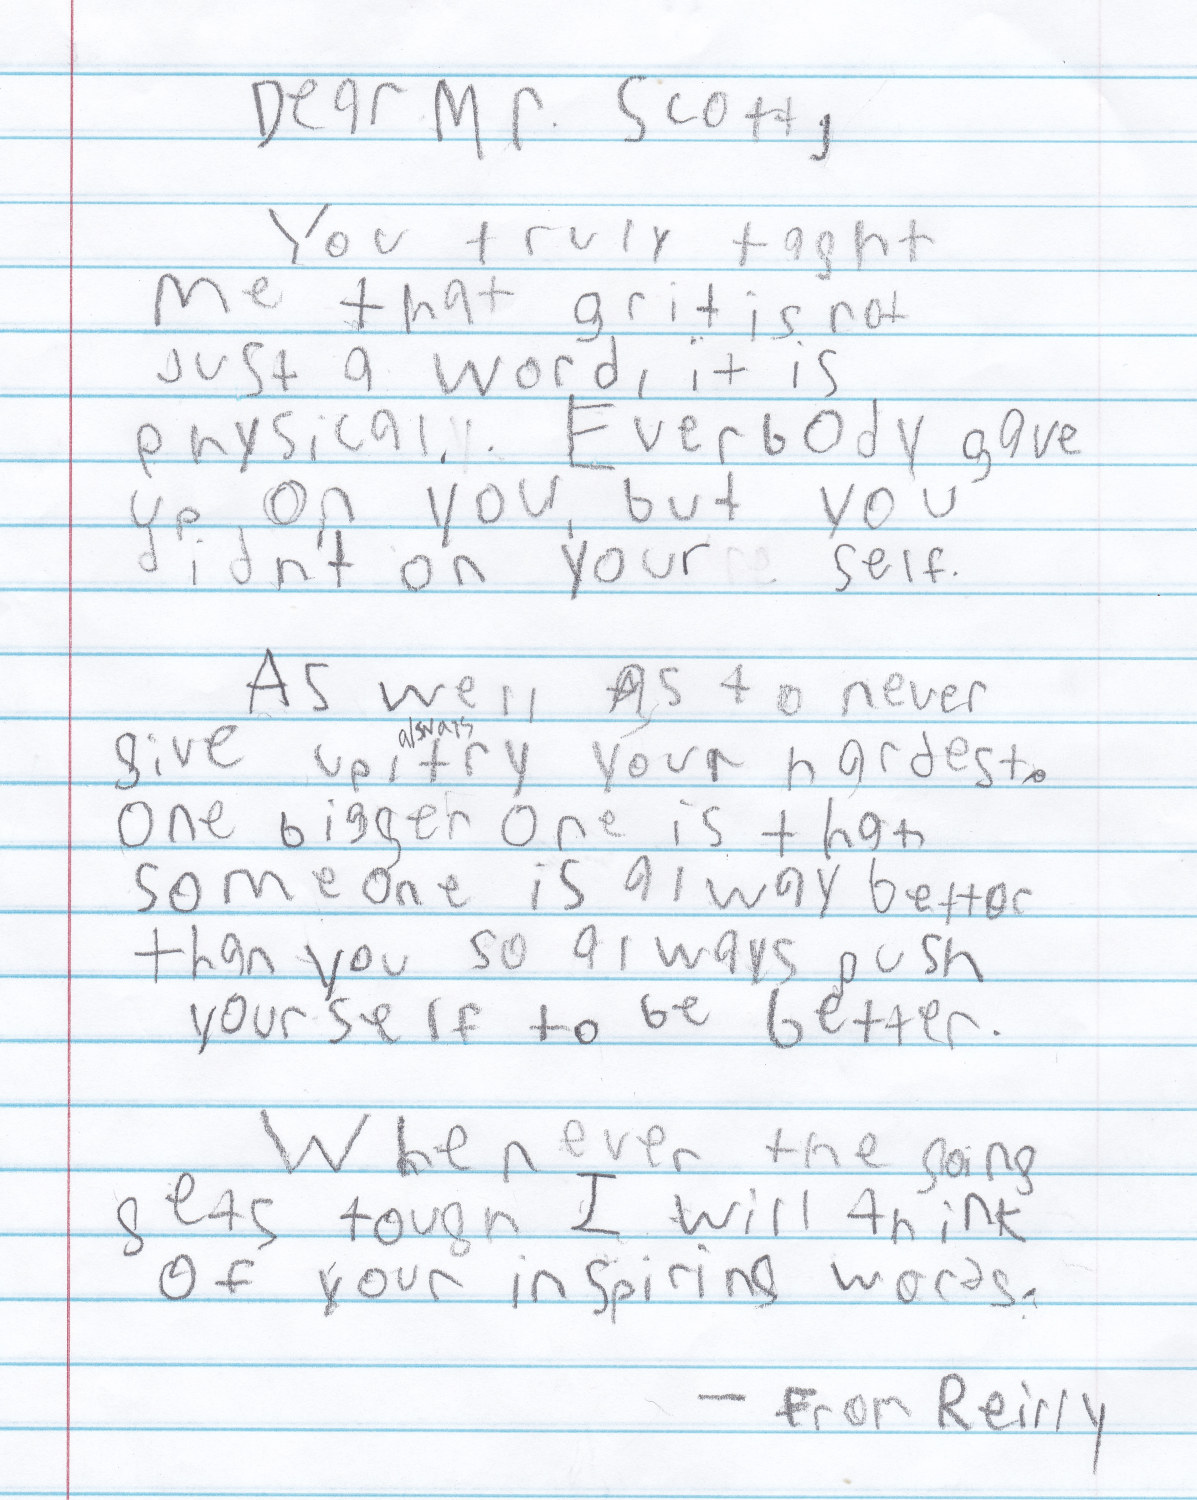 Dear Mr. Scott,
You truly taght
me that grit is not
just a word, it is
physical. Everbody gave
up on you, but you
didn't on your self.
As well As to never
give up, always try your hardest.
one bigger one is that
someone is alway bettor
than you so always push
yourself to be better.
When ever the going
gets tough I will think
of your inspiring words.
- From Reilly